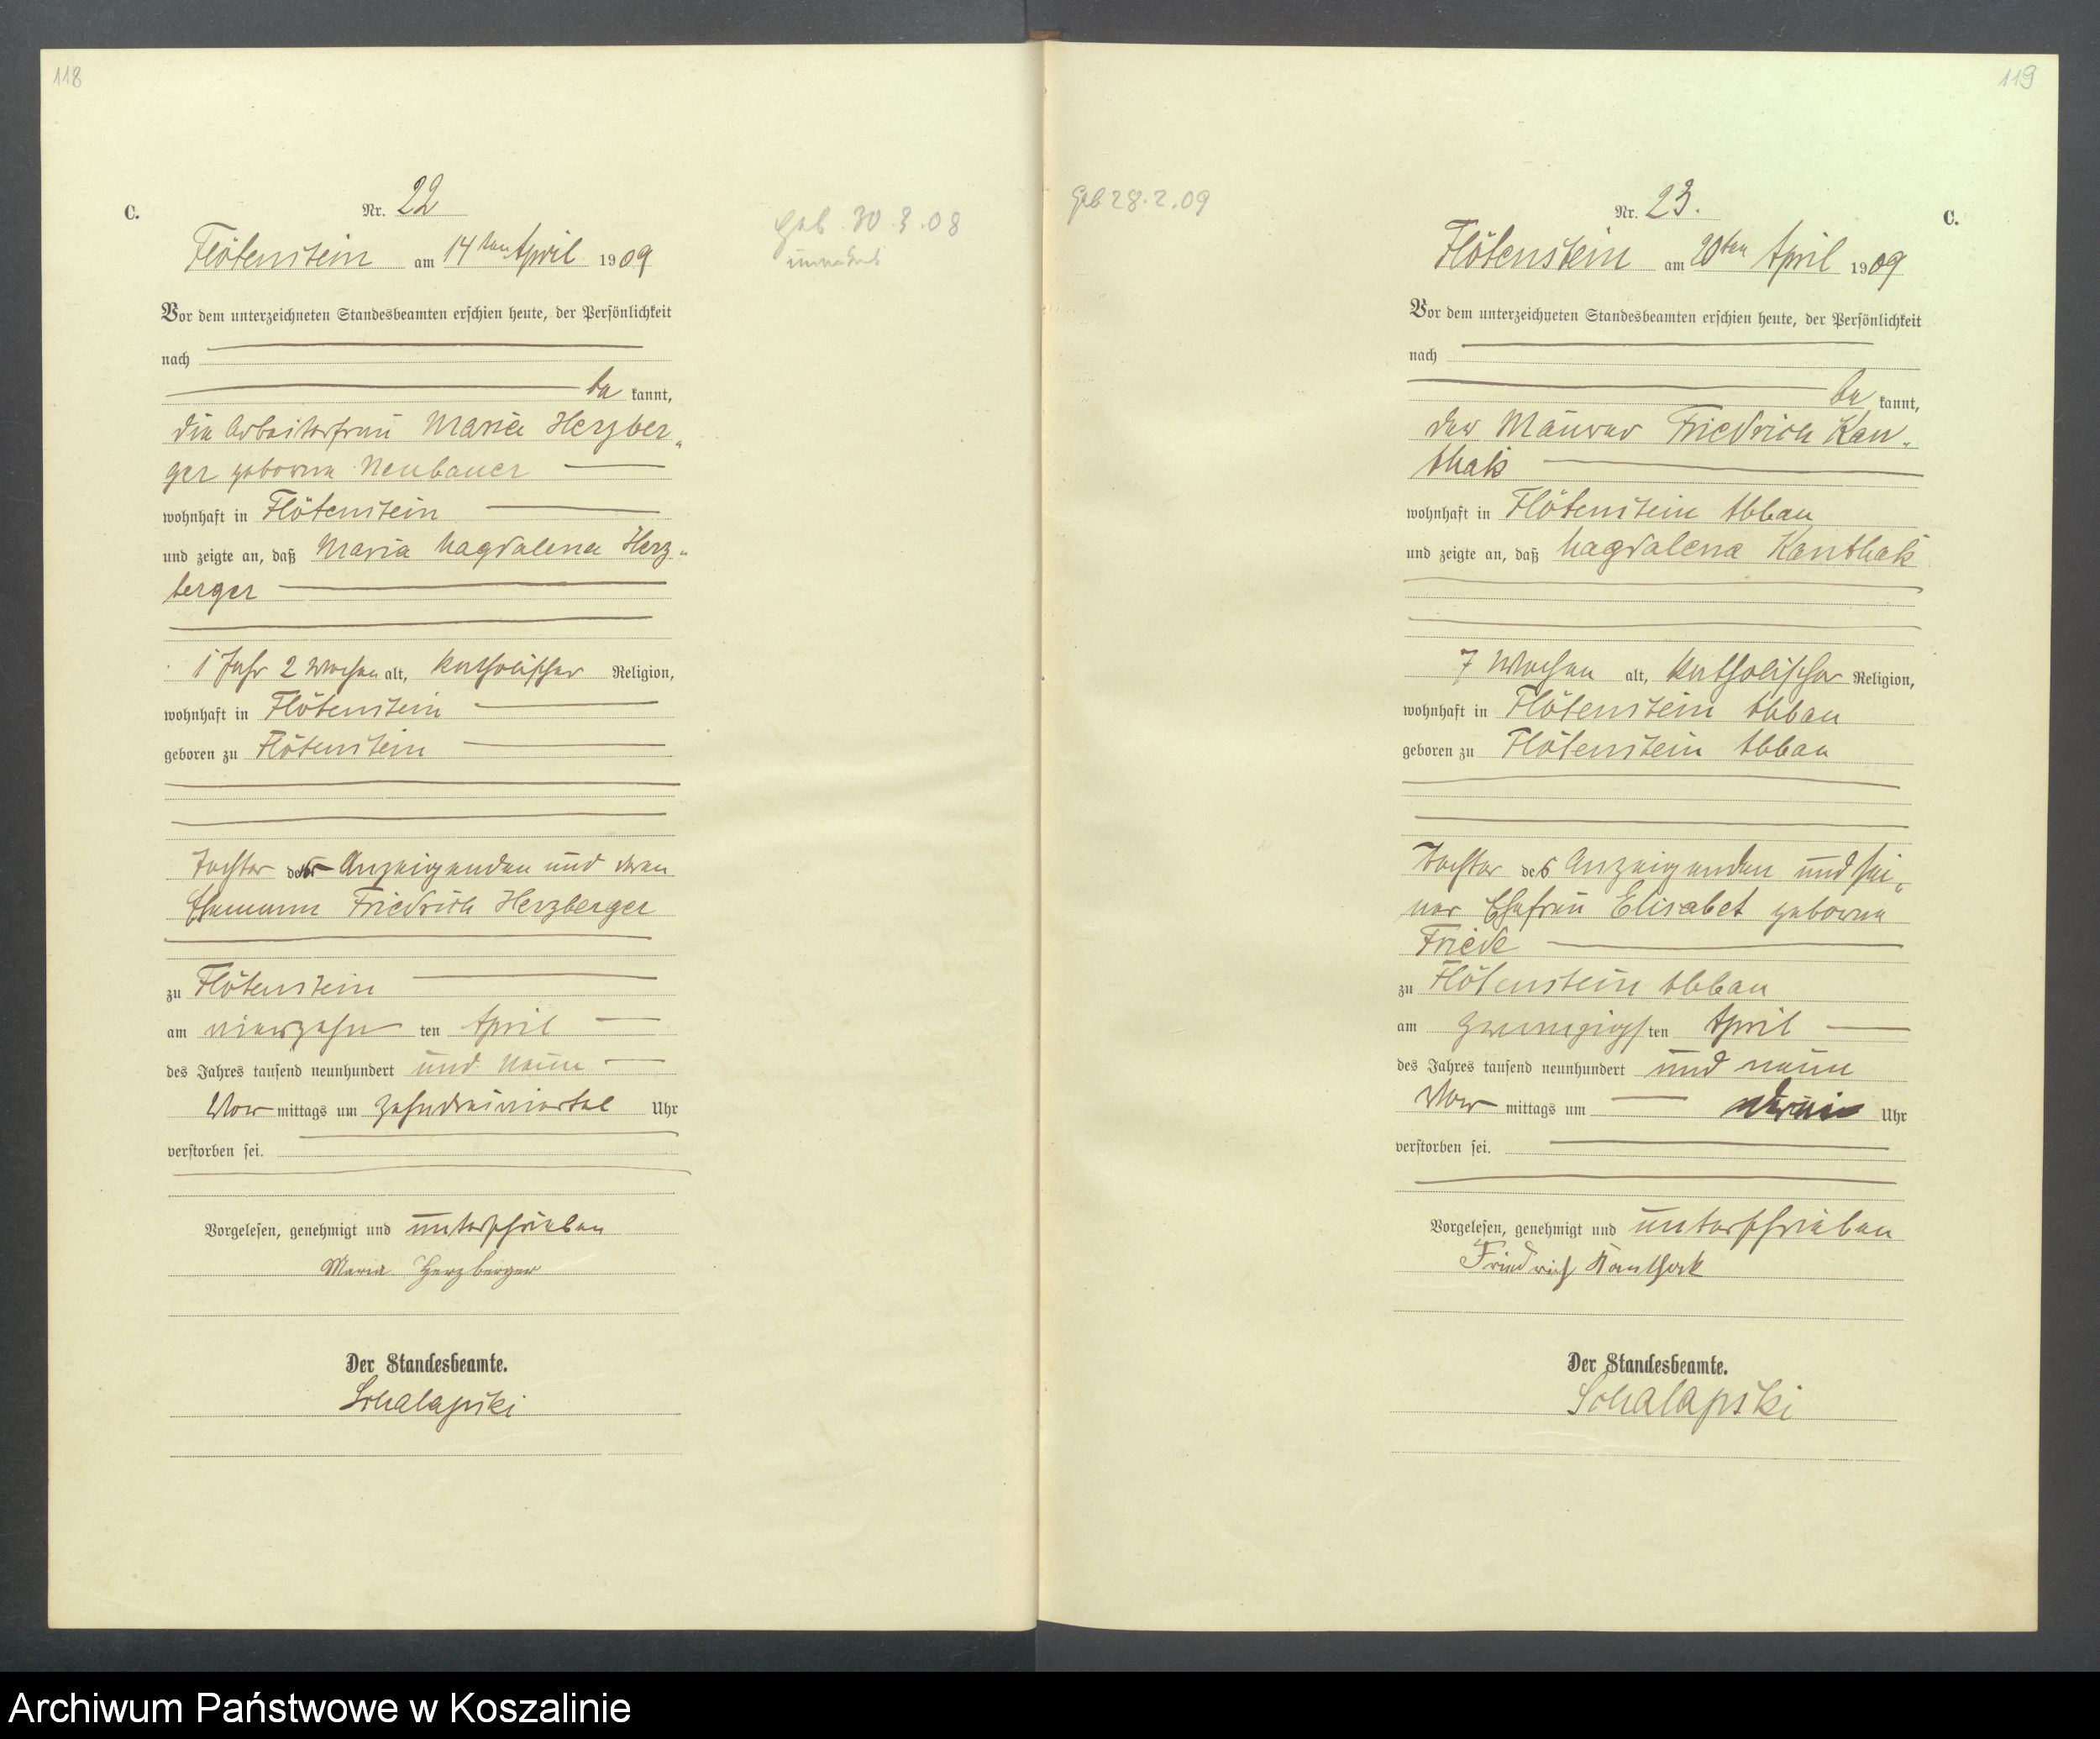 118
C.
Nr. 22
Flötenstein am 14ten April 1909
geb. 30.3.08
Vor dem unterzeichneten Standesbeamten erschien heute, der Persönlichkeit
nach
be kannt,
die Arbeiterfrau Maria Herzber„
ger geborene Neubauer
wohnhaft in Flötenstein
und zeigte an, daß Maria Magdalena Herz„
berger
1 Jahr 2 Wochen alt, katholischer Religion,
wohnhaft in Flötenstein
geboren zu Flötenstein
Tochter der Anzeigenden und deren
Ehemann Friedrich Herzberger
zu Flötenstein
am vierzehn ten April
des Jahres tausend neunhundert und neun
Vor mittags um zehndreiviertel Uhr
verstorben sei.
Vorgelesen, genehmigt und unterschrieben
Maria Herzberger
Der Standesbeamte.
Schalapski
119
geb 28.2.09
Nr. 23.
C.
Flötenstein am 20ten April 1909
Vor dem unterzeichneten Standesbeamten erschien heute, der Persönlichkeit
nach
be kannt,
der Maurer Friedrich Kan„
thak
wohnhaft in Flötenstein Abbau
und zeigte an, daß Magdalena Kanthak
7 Wochen alt, katholischer Religion,
wohnhaft in Flötenstein Abbau
geboren zu Flötenstein Abbau
Tochter des Anzeigenden und sei„
ner Ehefrau Elisabet geborene
Friede
zu Flötenstein Abbau
am zwanzigs ten April
des Jahres tausend neunhundert und neun
Vor mittags um Uhr
verstorben sei.
Vorgelesen, genehmigt und unterschrieben
Friedrich Kanthak
Der Standesbeamte.
Schalapski
Archiwum Państwowe w Koszalinie